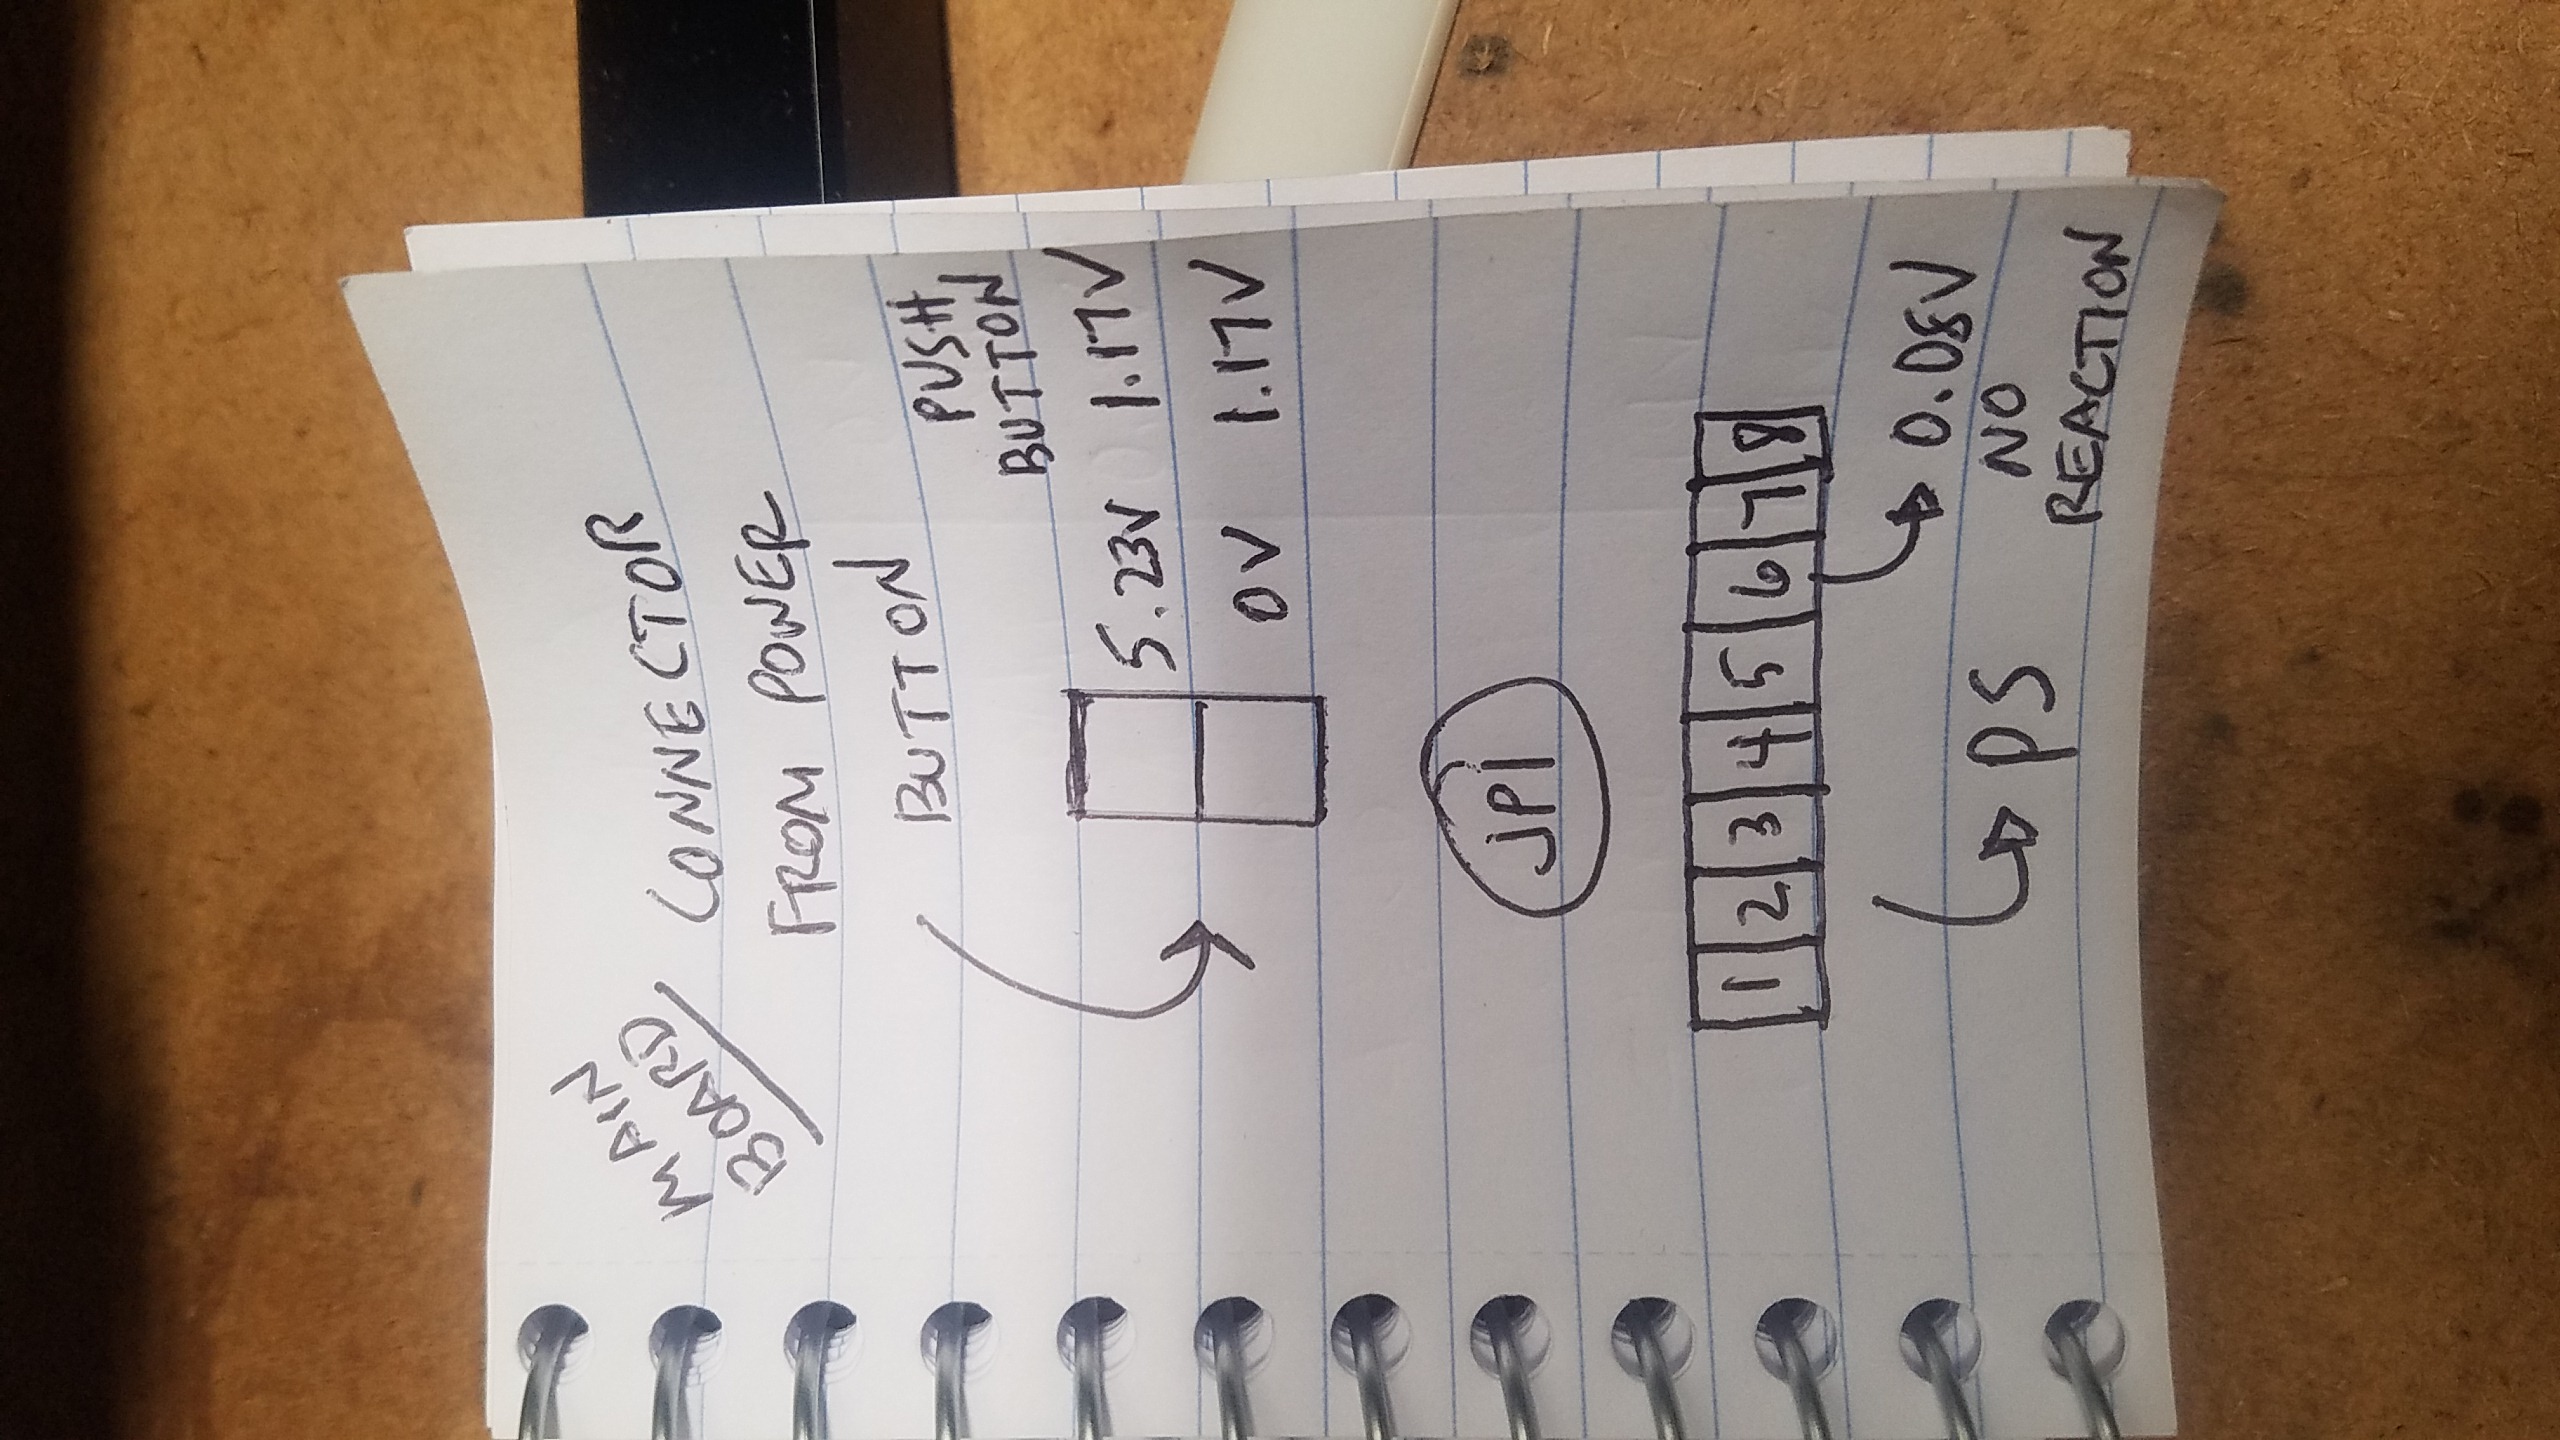 MAIN
BOARD/
CONNECTOR
FROM POWER
BUTTON
PUSH
BUTTON
5.23V 1.17V
0V 1.17V
JP1
1 2 3 4 5 6 7 8
0.08V
PS
NO
REACTION